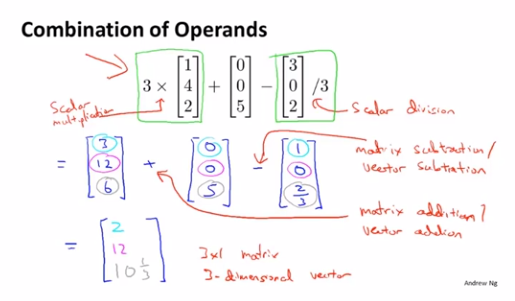 Combination of Operands
3 × [1 4 2] + [0 0 5] − [3 0 2] /3
Scalar multiplication
Scalar division
= [3 12 6] + [0 0 5] - [1 0 2/3]
matrix subtraction/
vector subtration
matrix addition/
vector addion
= [2 12 10 1/3]
3x1 matrix
3-dimensional vector
Andrew Ng